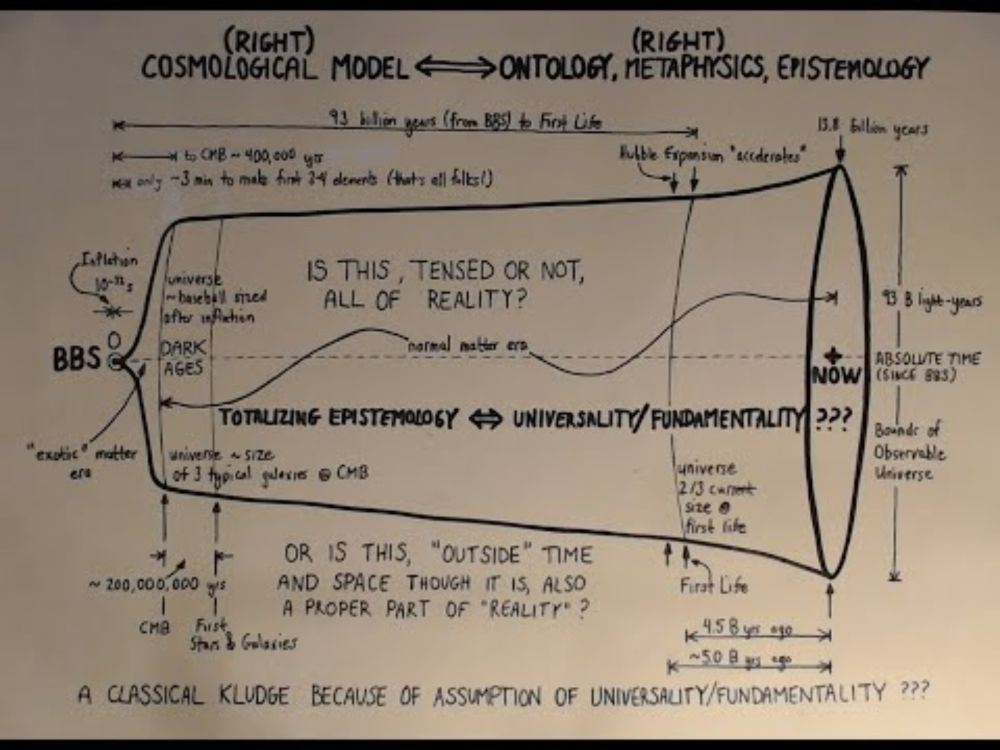 (RIGHT) (RIGHT)
COSMOLOGICAL MODEL ⟺ ONTOLOGY, METAPHYSICS, EPISTEMOLOGY
9.3 billion years (from BBS) to First Life
13.8 billion years
to CMB ~ 400,000 yrs
Hubble Expansion "accelerates"
only ~3 min to make first 3-4 elements (that's all folks!)
Inflation
10⁻³²s
universe
~baseball sized
after inflation
IS THIS, TENSED OR NOT,
ALL OF REALITY?
93 B light-years
BBS
DARK
AGES
normal matter era
+
NOW
ABSOLUTE TIME
(SINCE BBS)
TOTALIZING EPISTEMOLOGY ⟺ UNIVERSALITY/FUNDAMENTALITY ???
"exotic" matter
era
universe ~ size
of 3 typical galaxies @ CMB
universe
2/3 current
size @
first life
Bounds of
Observable
Universe
OR IS THIS, "OUTSIDE" TIME
AND SPACE THOUGH IT IS, ALSO
A PROPER PART OF "REALITY"?
~ 200,000,000 yrs
CMB
First
Stars & Galaxies
First Life
4.5 B yrs ago
~5.0 B yrs ago
A CLASSICAL KLUDGE BECAUSE OF ASSUMPTION OF UNIVERSALITY/FUNDAMENTALITY ???